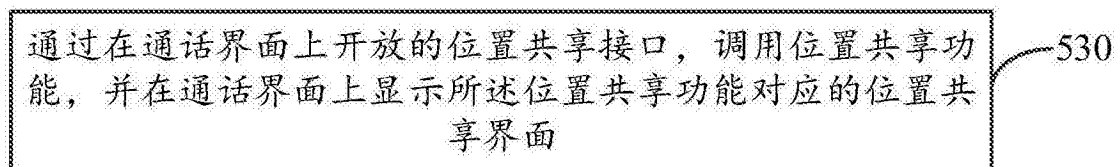 通过在通话界面上开放的位置共享接口，调用位置共享功
能，并在通话界面上显示所述位置共享功能对应的位置共
享界面
530